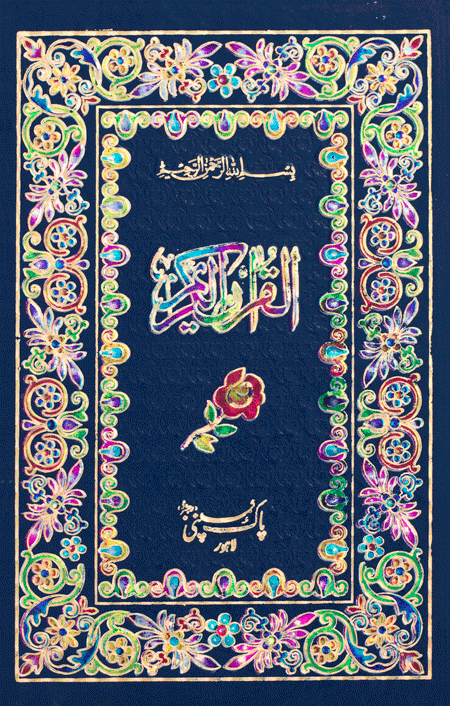 بسم الله الرحمن الرحيم
القرآن الكريم
پاک کمپنی (رجسٹرڈ)
لاہور